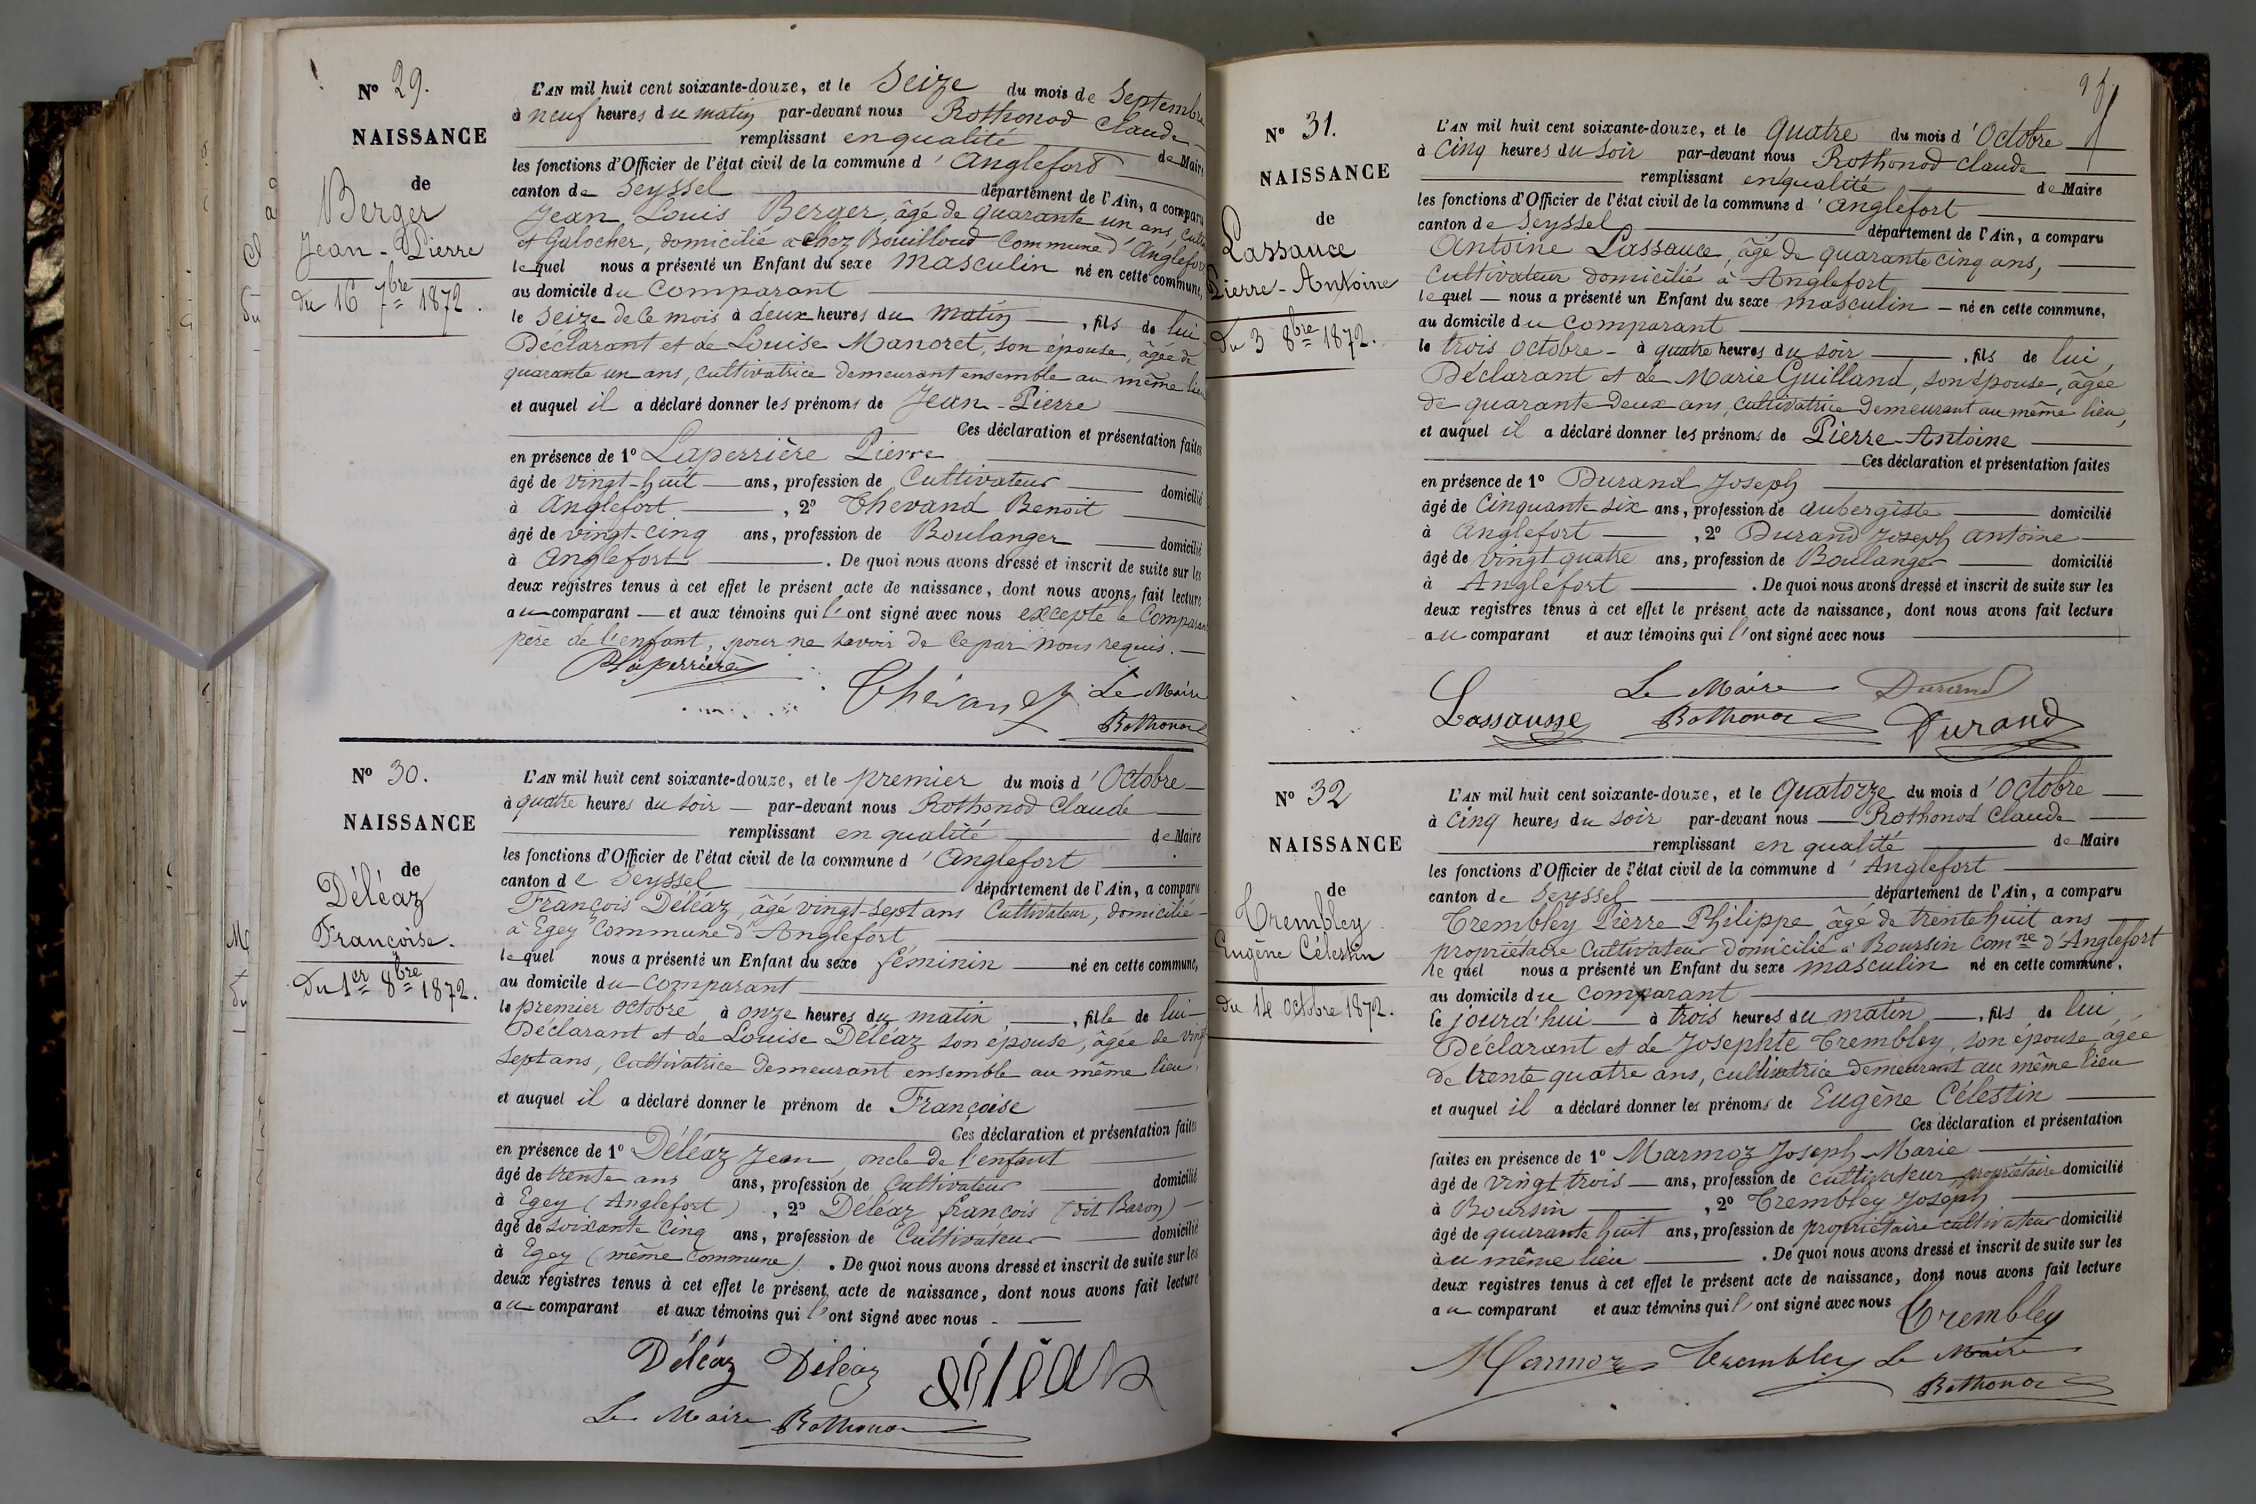 N° 29.
NAISSANCE
de
Berger
Jean-Pierre
du 16 7bre 1872.
L'AN mil huit cent soixante-douze, et le Seize du mois de Septembre
à neuf heures du matin par-devant nous Rothonod Claude
remplissant en qualité de Maire
les fonctions d'Officier de l'état civil de la commune d'Anglefort
canton de Seyssel département de l'Ain, a comparu
Jean Louis Berger, âgé de quarante un ans,
et Galocher, domicilié à chez Bouilloud Commune d'Anglefort
lequel nous a présenté un Enfant du sexe masculin né en cette commune,
au domicile du Comparant
le Seize de ce mois à deux heures du matin, fils de lui
Déclarant et de Louise Manoret, son épouse, âgée de
quarante un ans, cultivatrice demeurant ensemble au même lieu
et auquel il a déclaré donner les prénoms de Jean-Pierre
Ces déclaration et présentation faites
en présence de 1° Laperrière Pierre
âgé de vingt-huit ans, profession de Cultivateur domicilié
à Anglefort, 2° Thevand Benoit
âgé de vingt-cinq ans, profession de Boulanger domicilié
à Anglefort. De quoi nous avons dressé et inscrit de suite sur les
deux registres tenus à cet effet le présent acte de naissance, dont nous avons fait lecture
au comparant et aux témoins qui l'ont signé avec nous excepté le Comparant
père de l'enfant, pour ne savoir de ce par nous requis.
Laperrière
Le Maire
Rothonod
N° 30.
NAISSANCE
de
Déléaz
Françoise.
Du 1er 8bre 1872.
L'AN mil huit cent soixante-douze, et le premier du mois d'Octobre
à quatre heures du soir par-devant nous Rothonod Claude
remplissant en qualité de Maire
les fonctions d'Officier de l'état civil de la commune d'Anglefort
canton de Seyssel département de l'Ain, a comparu
François Déléaz, âgé vingt-sept ans Cultivateur, domicilié
à Egey Commune d'Anglefort
lequel nous a présenté un Enfant du sexe féminin né en cette commune,
au domicile du Comparant
le premier octobre à onze heures du matin, fille de lui
Déclarant et de Louise Déléaz son épouse, âgée de vingt
sept ans, Cultivatrice Demeurant ensemble au même lieu,
et auquel il a déclaré donner le prénom de Françoise
Ces déclaration et présentation faites
en présence de 1° Déléaz Jean, oncle de l'enfant
âgé de trente ans ans, profession de Cultivateur domicilié
à Egey (Anglefort), 2° Déléaz françois (dit Baron)
âgé de soixante cinq ans, profession de Cultivateur domicilié
à Egey (même commune). De quoi nous avons dressé et inscrit de suite sur les
deux registres tenus à cet effet le présent acte de naissance, dont nous avons fait lecture
au comparant et aux témoins qui l'ont signé avec nous
Déléaz Déléaz Déléaz
Le Maire Rothonod
N° 31.
NAISSANCE
de
Lassauce
Pierre-Antoine
Du 3 8bre 1872.
L'AN mil huit cent soixante-douze, et le quatre du mois d'Octobre
à Cinq heures du soir par-devant nous Rothonod Claude
remplissant en qualité de Maire
les fonctions d'Officier de l'état civil de la commune d'Anglefort
canton de Seyssel département de l'Ain, a comparu
Antoine Lassauce, âgé de quarante cinq ans,
Cultivateur domicilié à Anglefort
lequel nous a présenté un Enfant du sexe masculin né en cette commune,
au domicile du Comparant
le trois octobre à quatre heures du soir, fils de lui,
Déclarant et de Marie Guilland, son épouse, âgée
de quarante deux ans, cultivatrice demeurant au même lieu,
et auquel il a déclaré donner les prénoms de Pierre-Antoine
Ces déclaration et présentation faites
en présence de 1° Durand Joseph
âgé de Cinquante six ans, profession de aubergiste domicilié
à Anglefort, 2° Durand Joseph antoine
âgé de vingt quatre ans, profession de Boulanger domicilié
à Anglefort. De quoi nous avons dressé et inscrit de suite sur les
deux registres tenus à cet effet le présent acte de naissance, dont nous avons fait lecture
au comparant et aux témoins qui l'ont signé avec nous
Le Maire Durand
Lassausse Rothonod Durand
N° 32
NAISSANCE
de
Trembley
Eugène Célestin
du 14 Octobre 1872.
L'AN mil huit cent soixante-douze, et le Quatorze du mois d'Octobre
à Cinq heures du soir par-devant nous Rothonod Claude
remplissant en qualité de Maire
les fonctions d'Officier de l'état civil de la commune d'Anglefort
canton de Seyssel département de l'Ain, a comparu
Trembley Pierre Philippe âgé de trente huit ans
propriétaire Cultivateur domicilié à Boursin comne d'Anglefort
le quel nous a présenté un Enfant du sexe masculin né en cette commune,
au domicile du comparant
le jourd'hui à trois heures du matin, fils de lui,
Déclarant et de Josephte Trembley, son épouse âgée
de trente quatre ans, cultivatrice demeurant au même lieu
et auquel il a déclaré donner les prénoms de Eugène Célestin
Ces déclaration et présentation
faites en présence de 1° Marmoz Joseph Marie
âgé de vingt trois ans, profession de cultivateur propriétaire domicilié
à Boursin, 2° Trembley Joseph
âgé de quarante huit ans, profession de propriétaire cultivateur domicilié
au même lieu. De quoi nous avons dressé et inscrit de suite sur les
deux registres tenus à cet effet le présent acte de naissance, dont nous avons fait lecture
au comparant et aux témoins qui l'ont signé avec nous Trembley
Marmoz Trembley Le Maire
Rothonod